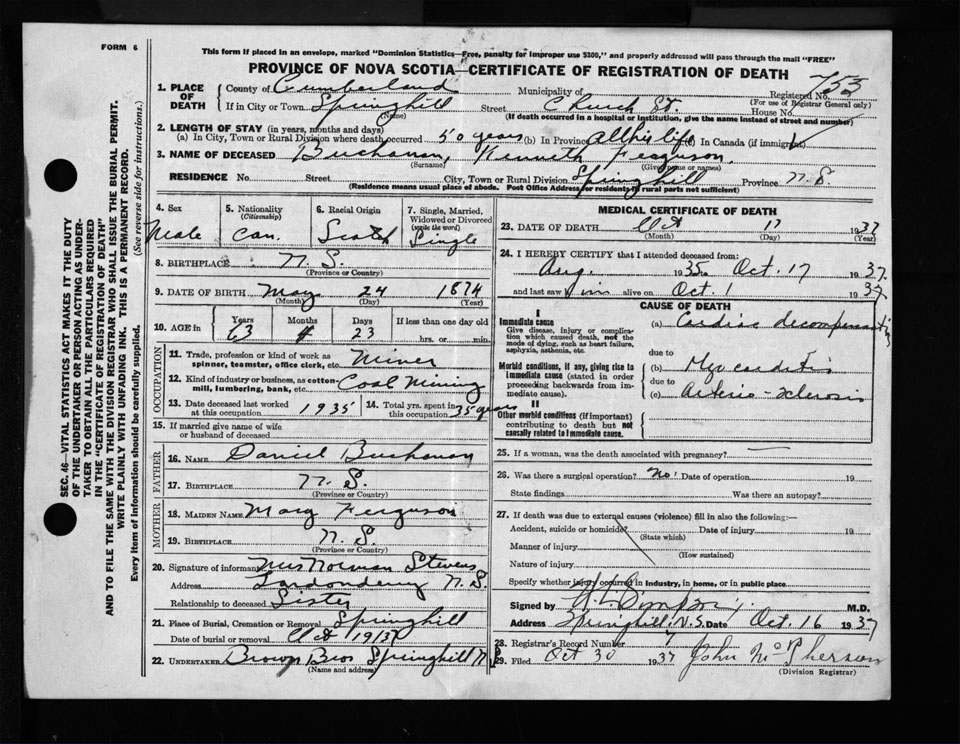 FORM 6
This form if placed in an envelope, marked "Dominion Statistics—Free, penalty for improper use $300," and properly addressed will pass through the mail "FREE"
PROVINCE OF NOVA SCOTIA—CERTIFICATE OF REGISTRATION OF DEATH
SEC. 46—VITAL STATISTICS ACT MAKES IT THE DUTY
OF THE UNDERTAKER OR PERSON ACTING AS UNDER-
TAKER TO OBTAIN ALL THE PARTICULARS REQUIRED
IN THE "CERTIFICATE OF REGISTRATION OF DEATH"
AND TO FILE THE SAME WITH THE DIVISION REGISTRAR WHO SHALL ISSUE THE BURIAL PERMIT.
WRITE PLAINLY WITH UNFADING INK. THIS IS A PERMANENT RECORD.
Every item of information should be carefully supplied. (See reverse side for instructions.)
1. PLACE OF DEATH County of Cumberland Municipality of Registered No. 753
(For use of Registrar General only)
If in City or Town Springhill Street Church St. House No.
(Name) (If death occurred in a hospital or institution, give the name instead of street and number)
2. LENGTH OF STAY (in years, months and days)
(a) In City, Town or Rural Division where death occurred 50 years (b) In Province all his life (c) In Canada (if immigrant)
3. NAME OF DECEASED Buchanan, Kenneth Ferguson.
(Surname) (Given name or names)
RESIDENCE No. Street City, Town or Rural Division Springhill Province N.S.
(Residence means usual place of abode. Post Office Address for residents in rural parts not sufficient)
4. Sex 5. Nationality (Citizenship) 6. Racial Origin 7. Single, Married, Widowed or Divorced (write the word)
Male Can. Scotch Single
8. BIRTHPLACE N.S.
(Province or Country)
9. DATE OF BIRTH May 24 1874
(Month) (Day) (Year)
10. AGE in Years Months Days If less than one day old
63 4 23 hrs. or min.
OCCUPATION
11. Trade, profession or kind of work as spinner, teamster, office clerk, etc. Miner
12. Kind of industry or business, as cotton-mill, lumbering, bank, etc. Coal Mining
13. Date deceased last worked at this occupation 1935 14. Total yrs. spent in this occupation 35 years
15. If married give name of wife or husband of deceased
FATHER
16. NAME Daniel Buchanan
17. BIRTHPLACE N.S.
(Province or Country)
MOTHER
18. MAIDEN NAME Mary Ferguson
19. BIRTHPLACE N.S.
(Province or Country)
20. Signature of informant Mrs Norman Stevens
Address Londonderry N.S.
Relationship to deceased Sister
21. Place of Burial, Cremation or Removal Springhill
Date of burial or removal Oct 19/37
22. UNDERTAKER Brown Bros Springhill
(Name and address)
MEDICAL CERTIFICATE OF DEATH
23. DATE OF DEATH Oct 17 1937
(Month) (Day) (Year)
24. I HEREBY CERTIFY that I attended deceased from:
Aug. 1935 to Oct. 17 1937
and last saw him alive on Oct. 1 1937
CAUSE OF DEATH
I
Immediate cause (a) Cardiac decompensation
Give disease, injury or complication which caused death, not the mode of dying, such as heart failure, asphyxia, asthenia, etc.
due to
Morbid conditions, if any, giving rise to immediate cause (stated in order proceeding backwards from immediate cause). (b) Myocarditis
due to
(c) Arterio-sclerosis
II
Other morbid conditions (if important) contributing to death but not causally related to immediate cause.
25. If a woman, was the death associated with pregnancy?
26. Was there a surgical operation? No Date of operation 19
State findings Was there an autopsy?
27. If death was due to external causes (violence) fill in also the following:—
Accident, suicide or homicide? Date of injury 19
(State which)
Manner of injury
(How sustained)
Nature of injury
Specify whether injury occurred in industry, in home, or in public place
Signed by M.D.
Address Springhill, N.S. Date Oct 16 1937
28. Registrar's Record Number
29. Filed Oct 30 1937 John McPherson
(Division Registrar)